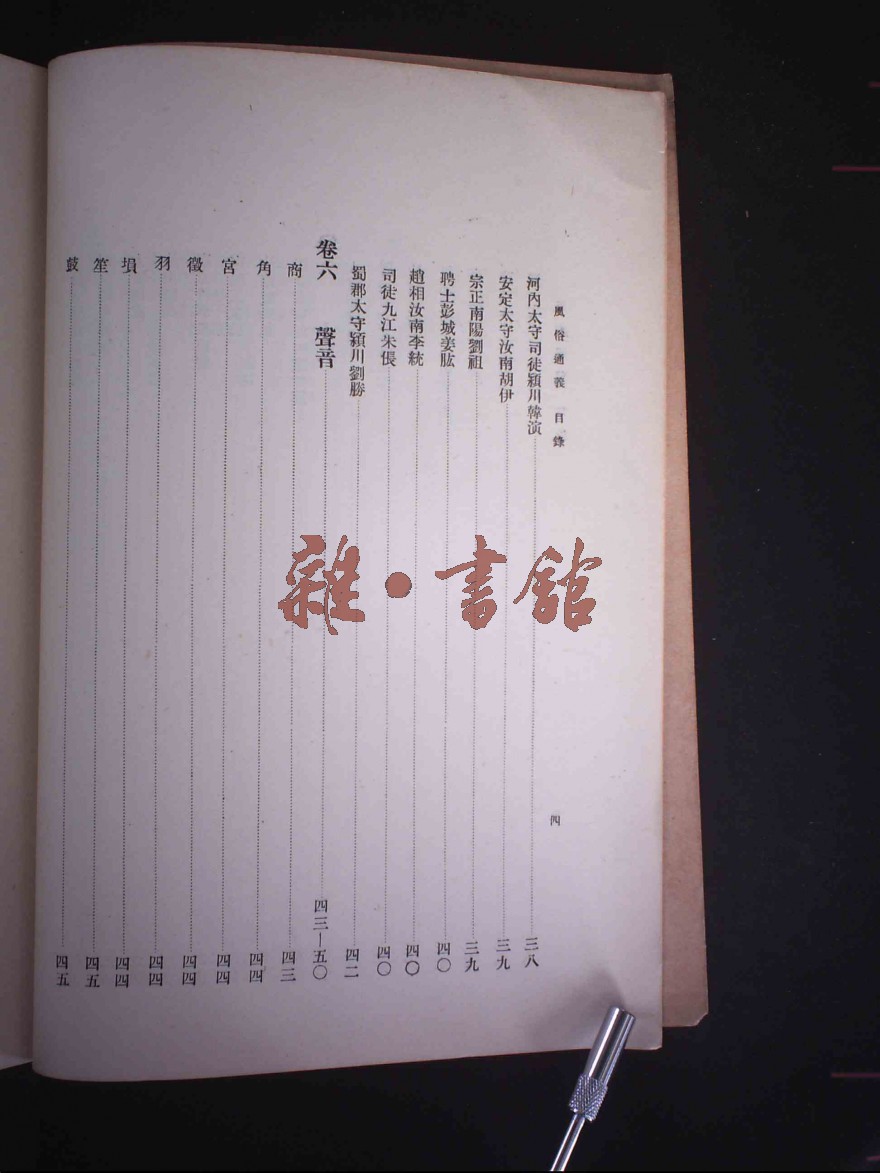 風俗通義　目錄
四
河內太守司徒潁川韓演……三八
安定太守汝南胡伊……三九
宗正南陽劉祖……三九
聘士彭城姜肱……四〇
趙相汝南李統……四〇
司徒九江朱倀……四〇
蜀郡太守潁川劉勝……四二
卷六　聲音……四三—五〇
商……四三
角……四四
宮……四四
徵……四四
羽……四四
塤……四四
笙……四五
鼓……四五
雜·書館